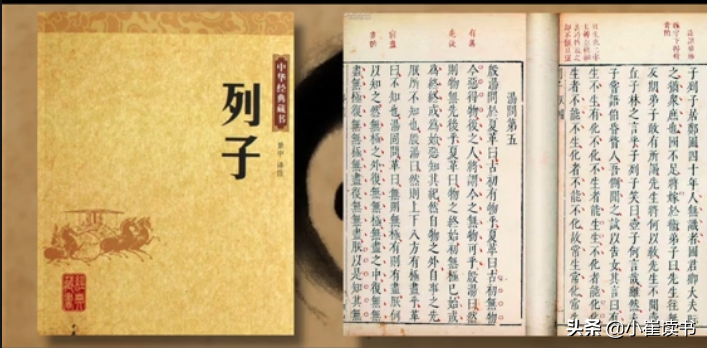 中华经典藏书
列子
景中 译注
湯問第五
殷湯問於夏革曰古初有物乎夏革曰古初無物
今惡得物後之人將謂今之無物可乎殷湯曰然
則物無先後乎夏革曰物之終始初無極已始或
為終終或為始惡知其紀然自物之外自事之先
朕所不知也殷湯曰然則上下八方有極盡乎革
曰不知也湯固問革曰無則無極有則有盡朕何
以知之然無極之外復無無極無盡之中復無無
盡無極復無無極無盡復無無盡朕以是知其無
子列子居鄭圃四十年人無識者國君卿大夫眎
之猶衆庶也國不足將嫁於衛弟子曰先生往無
反期弟子敢有所謁先生將何以教先生不聞壺
丘子林之言乎子列子笑曰壺子何言哉雖然夫
子嘗語伯昏瞀人吾側聞之試以告女其言曰有
生不生有化不化不生者能生生不化者能化化
生者不能不生化者不能不化故常生常化常
头条 @小崔读书